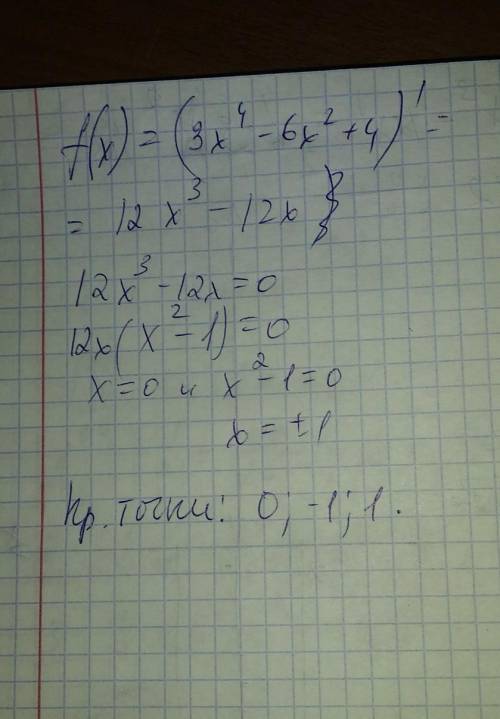 f(x) = (3x⁴ - 6x² + 4)' =
= 12x³ - 12x
12x³ - 12x = 0
12x(x² - 1) = 0
x = 0 и x² - 1 = 0
x = ± 1
Кр. точки: 0; -1; 1.